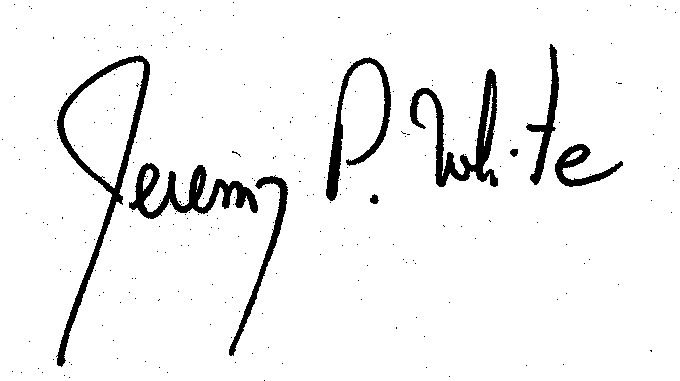 Jeremy P. White